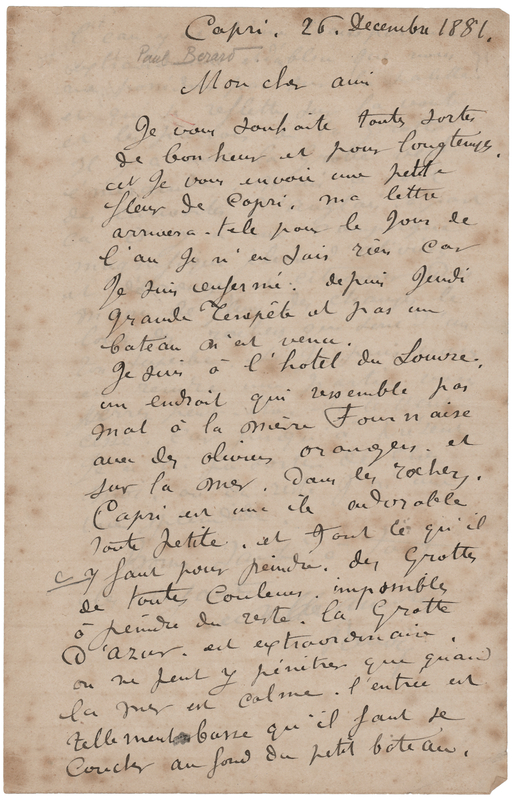 Capri. 26. Decembre 1881.
Paul Berard
Mon cher ami
Je vous souhaite toutes sortes
de bonheur et pour longtemps,
et Je vous envoie une petite
fleur de Capri. ma lettre
arrivera-tele pour le Jour de
l'an Je n'en sais rien car
Je suis enfermé. depuis Jeudi
Grande Tempête et pas un
bateau n'est venu.
Je suis à l'hotel du Louvre.
un endroit qui ressemble pas
mal à la mère Fournaise
avec des oliviers orangers. et
sur la mer. Dans les rochers.
Capri est une île adorable
toute petite. et Tout ce qu'il
y faut pour peindre. des Grottes
de toutes Couleurs. impossibles
à peindre du reste. la Grotte
D'azur. est extraordinaire.
on ne peut y pénétrer que quand
la mer est calme. l'entrée est
tellement basse qu'il faut se
coucher au fond du petit bateau.